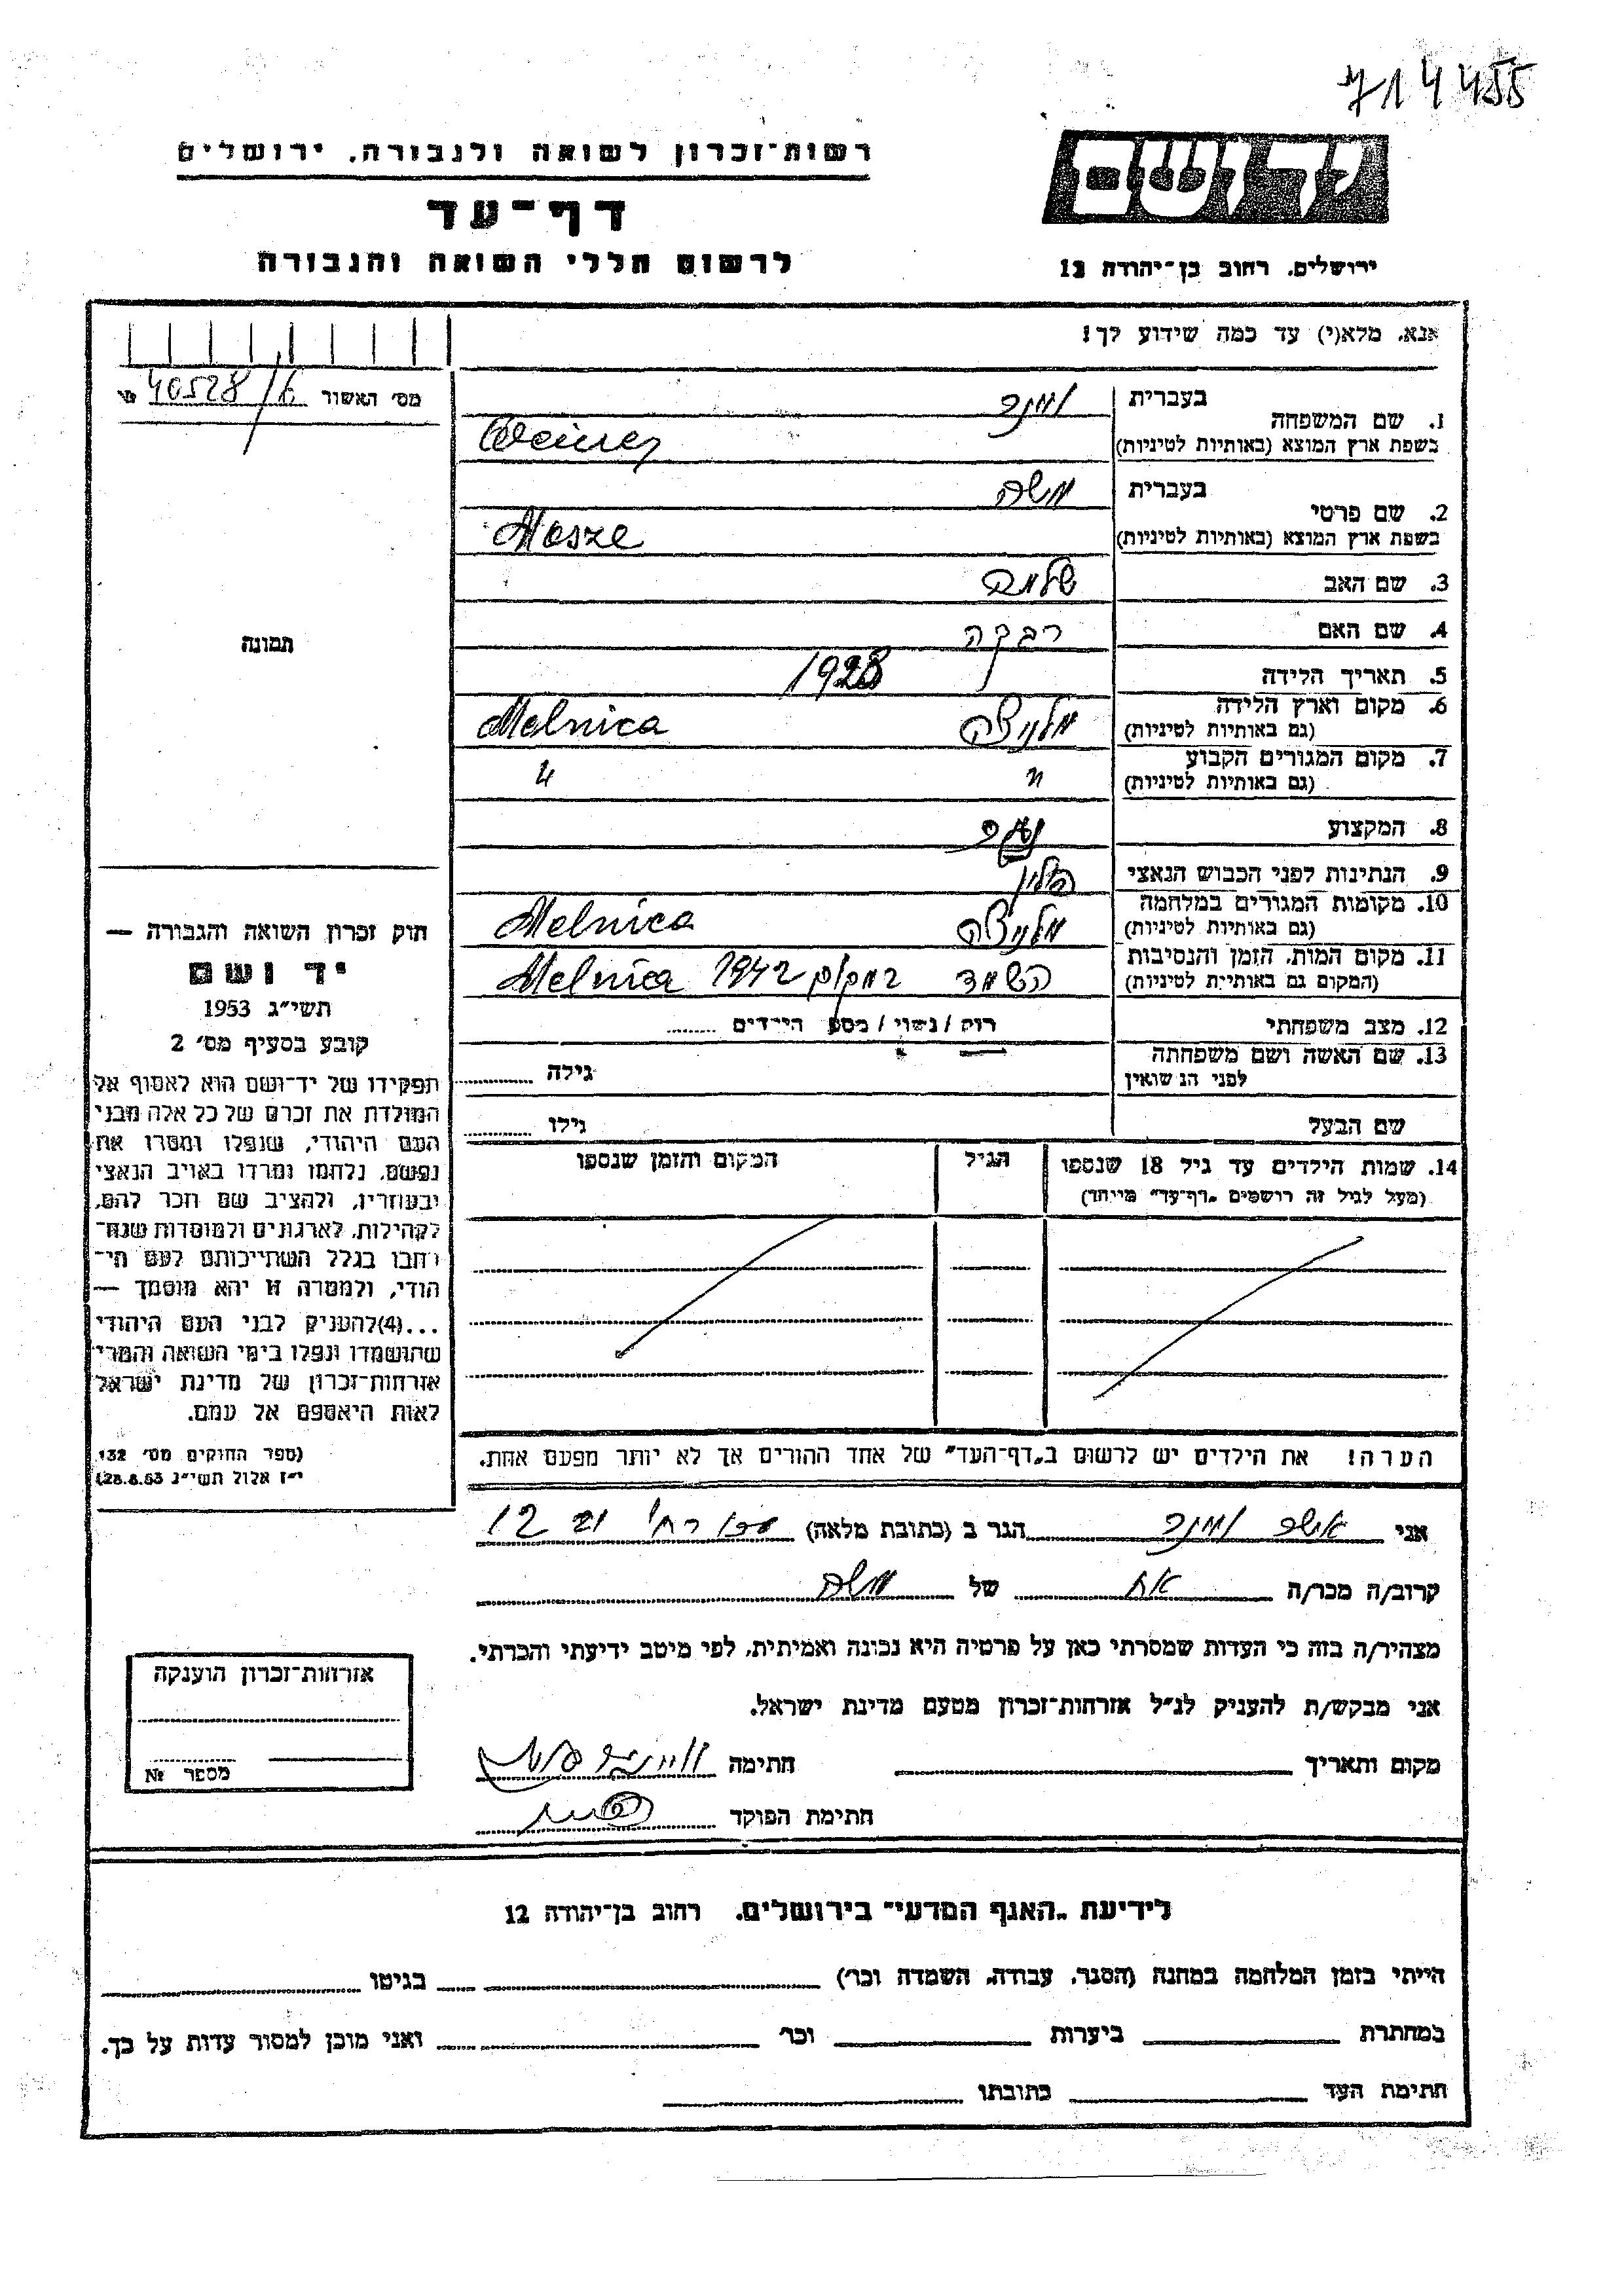 714455
רשות־זכרון לשואה ולגבורה, ירושלים
יד ושם
דף־עד
לרשום חללי השואה והגבורה
ירושלים, רחוב בן־יהודה 12
אנא, מלא(י) עד כמה שידוע לך!
מס׳ האשור 40528/6 №
1. שם המשפחה
בעברית וינר
בשפת ארץ המוצא (באותיות לטיניות) Weiner
2. שם פרטי
בעברית משה
בשפת ארץ המוצא (באותיות לטיניות) Mosze
3. שם האב שלמה
4. שם האם רבקה
5. תאריך הלידה 1928
6. מקום וארץ הלידה
(גם באותיות לטיניות) מלניצה Melnica
7. מקום המגורים הקבוע
(גם באותיות לטיניות) " "
8. המקצוע
9. הנתינות לפני הכבוש הנאצי פולין
10. מקומות המגורים במלחמה
(גם באותיות לטיניות) מלניצה Melnica
11. מקום המות, הזמן והנסיבות
(המקום גם באותיות לטיניות) השמד במקום 1942 Melnica
12. מצב משפחתי רוק / נשוי / מספר הילדים
13. שם האשה ושם משפחתה
לפני הנישואין גילה
שם הבעל גילו
14. שמות הילדים עד גיל 18 שנספו הגיל המקום והזמן שנספו
(מעל לגיל זה רושמים „דף־עד״ מיוחד)
הערה! את הילדים יש לרשום ב„דף־העד״ של אחד ההורים אך לא יותר מפעם אחת.
תמונה
חוק זכרון השואה והגבורה —
יד ושם
תשי״ג 1953
קובע בסעיף מס׳ 2
תפקידו של יד־ושם הוא לאסוף אל
המולדת את זכרם של כל אלה מבני
העם היהודי, שנפלו ומסרו את
נפשם, נלחמו ומרדו באויב הנאצי
ובעוזריו, ולהציב שם וזכר להם,
לקהילות, לארגונים ולמוסדות שנח־
רבו בגלל השתייכותם לעם הי־
הודי, ולמטרה זו יהא מוסמך —
...(4) להעניק לבני העם היהודי
שהושמדו ונפלו בימי השואה והמרי
אזרחות־זכרון של מדינת ישראל
לאות היאספם אל עמם.
(ספר החוקים מס׳ 132,
י״ז אלול תשי״ג 28.8.53)
אני אשר וינר הגר ב (כתובת מלאה) 12
קרוב/ה מכר/ה אח של משה
מצהיר/ה בזה כי העדות שמסרתי כאן על פרטיה היא נכונה ואמיתית, לפי מיטב ידיעתי והכרתי.
אני מבקש/ת להעניק לנ״ל אזרחות־זכרון מטעם מדינת ישראל.
מקום ותאריך חתימה
חתימת הפוקד
אזרחות־זכרון הוענקה
מספר №
לידיעת „האגף המדעי״ בירושלים, רחוב בן־יהודה 12
הייתי בזמן המלחמה במחנה (הסגר, עבודה, השמדה וכו׳) בגיטו
במחתרת ביערות וכו׳ ואני מוכן למסור עדות על כך.
חתימת העד כתובתו